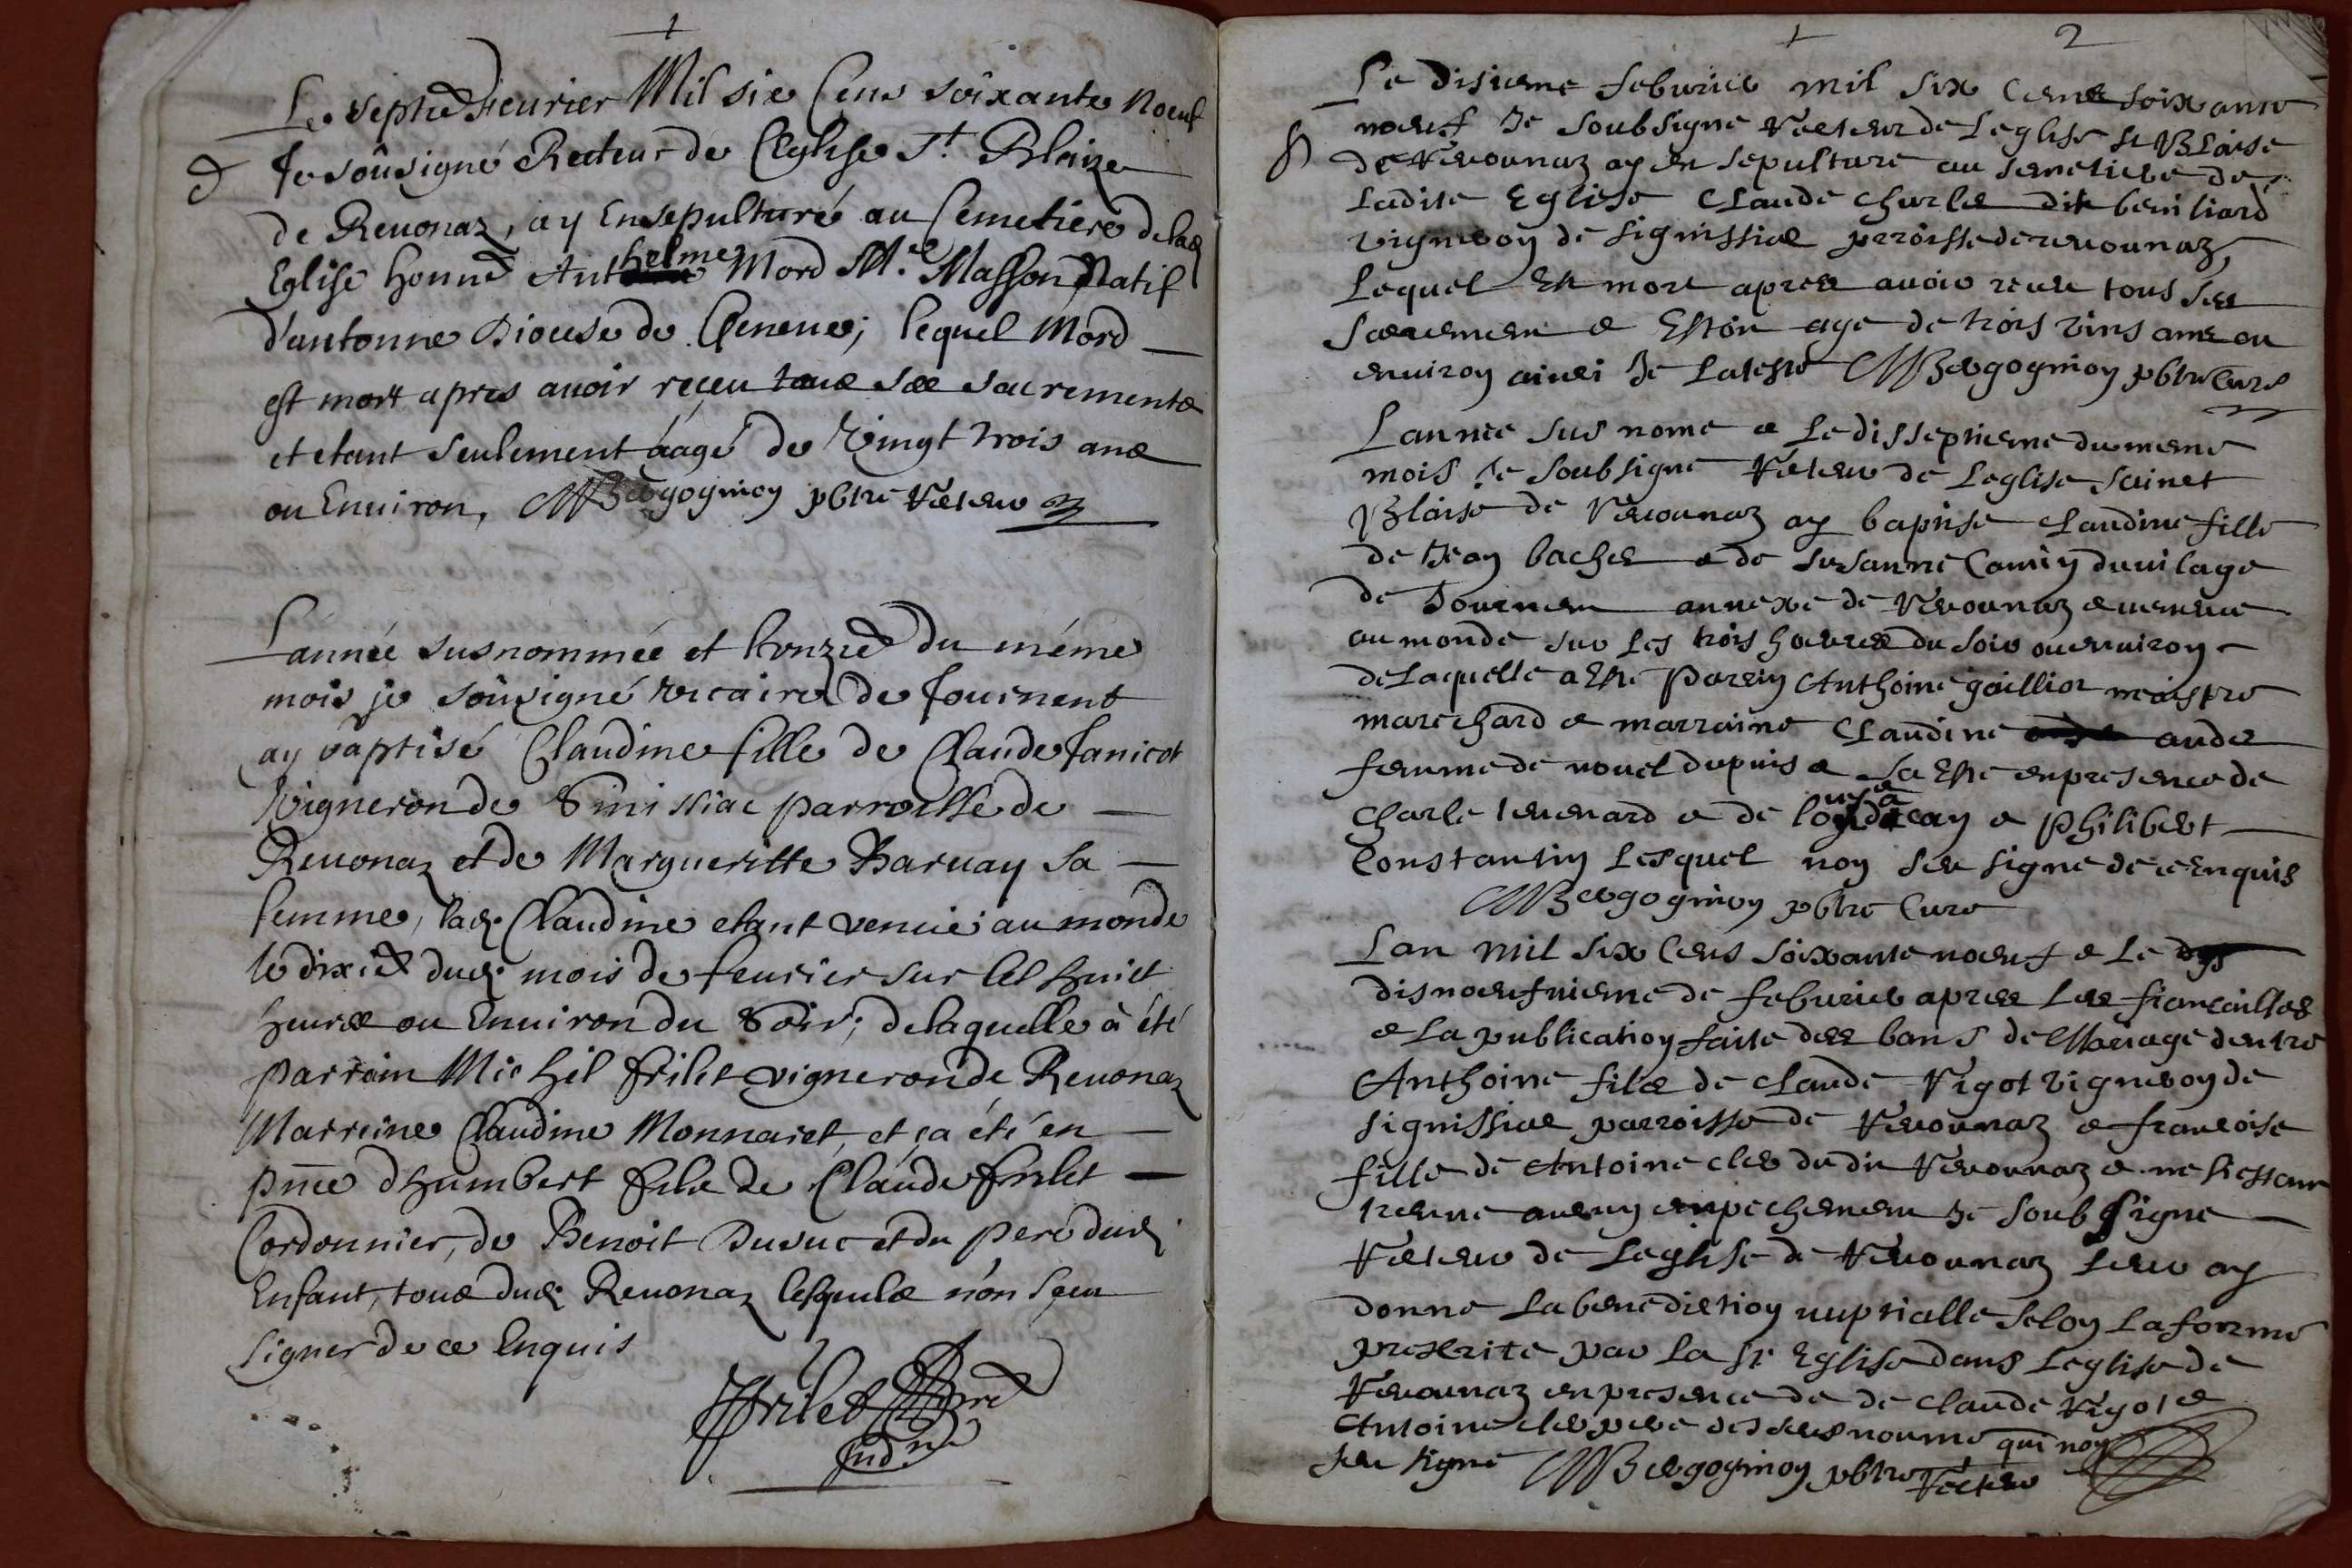 1
Le septie feurier Mil six Cens soixante Noeuf
Je soûsigné Recteur de l'Eglise St. Blaize
de Reuonaz, ay Ensepulturé au Cemetiere delad
Eglise honne Anthelme Mord Me. Masson Natif
d'antonne Diocese de Geneue; lequel Mord
est mort apres auoir reçeu tous ses sacrements
et etant seulement aagé de Vingt trois ans
ou Enuiron, Bergognion pbtre Recteur
L'année susnommée et l'onzie du méme
mois je soûsigné vicaire de Journent
ay baptisé Claudine fille de Claude Janicot
Vigneron de Sinissiac parroisse de
Reuonaz et de Margueritte Baruay sa
femme, lad. Claudine etant venüe au monde
le dixie dud. mois de feurier sur les huict
heures ou Enuiron du Soir; delaquelle à été
parrain Michel frilet vigneron de Reuonaz
Marreine Claudine Monnaret, et ça été en
pnce d'humbert fils de Claude frilet
Cordonnier, de Benoit Duvuc et du pere dud.
Enfant, tous dud. Reuonaz lesquels n'on sceu
signer de ce Enquis
JFrilet
2
Le disieme feburier mil six cens soixante
noeuf Je soubsigne Recteur de Leglise St Blaise
de Reuounaz ay en sepulture au semetiere de
Ladite Eglise Claude Charles dit beniliard
vigneron de signissiac parroisse de reuounaz,
Lequel est mort apres auoir receu tous ses
sacremens e Estoit age de trois vins ans ou
enuiron ainsi Je Lateste Bergognion pbtre Cure
Lannee sus nome e Le disseptieme du meme
mois Je soubsigne Recteur de Leglise sainct
Blaise de Reuounaz ay baptise Claudine fille
de Jean bachet e de susanne Camin du uilage
de Journen annexe de Reuounaz e uenue
au monde sur Les trois heures du soir ou enuiron
de Laquelle a Este Parrin Anthoine gaillior maistre
marechard e marraine Claudine andre
femme de nouel dupuis e sa Este en presence de
Charle tenenard e de e Philibert
Constantin Lesquel non seu signe de ce enquis
Bergognion pbtre Cure
Lan mil six Cens soixante noeuf e Le
disnoeufuieme de feburier apres Les fiancailles
e La publication faite des bans de Mariage dentre
Anthoine fils de Claude Rigot vigneron de
signissiac parroisse de Reuounaz e francoise
fille de Antoine cler du dit Reuounaz e ne siestant
treuue aucun empechement Je soubsigne
Recteur de Leglise de Reuounaz Leur ay
donne La benediction nuptialle selon La forme
prescrite par La ste Eglise dans Leglise de
Reuounaz en presence de de Claude Rigot e
Antoine cler pere des susnoume qui non
seu signe Bergognion pbtre Recteur